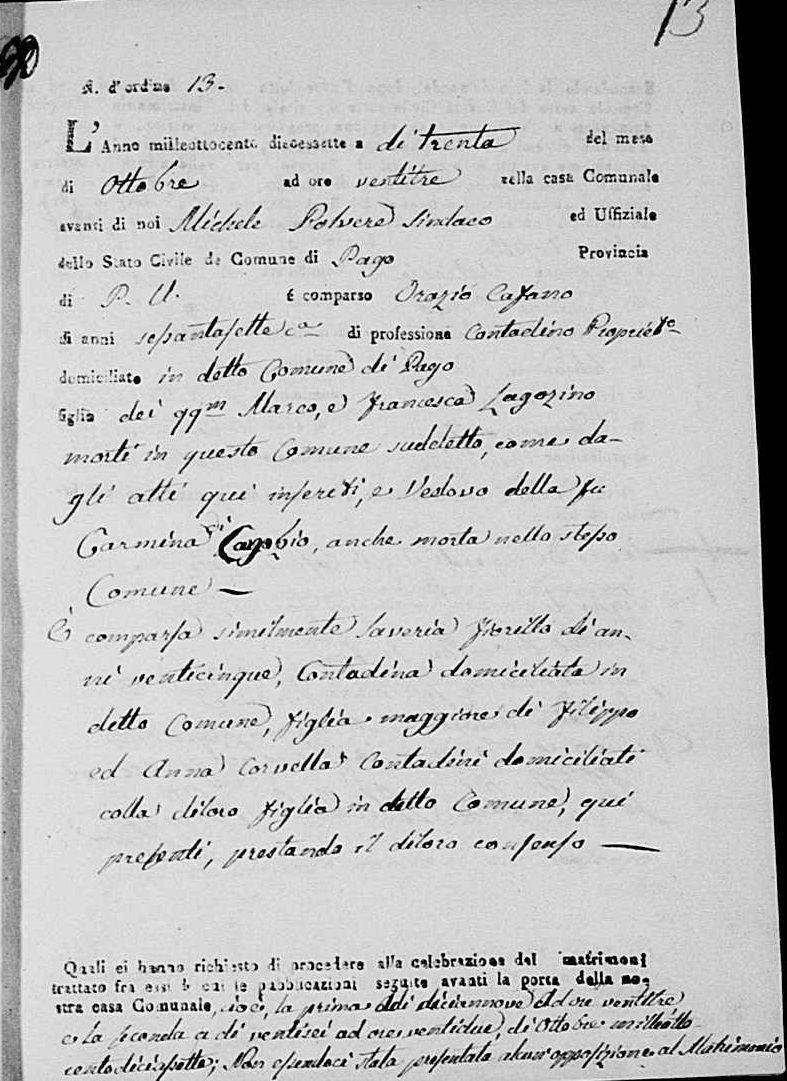 13
N. d'ordine 13.
L'Anno milleottocento diecessette a di trenta del mese
di Ottobre ad ore ventitre nella casa Comunale
avanti di noi Michele Polvere Sindaco ed Uffiziale
dello Stato Civile de Comune di Pago Provincia
di P. U. é comparso Orazio Cafano
di anni sessantasette ca di professione Contadino Propriet.e
domiciliato in detto Comune di Pago
figlio dei qqm Marco, e Francesca Lagozino
morti in questo Comune suddetto, come da-
gli atti qui inseriti, e Vedovo della fu
Carmina di, anche morta nello stesso
Comune —
È comparsa similmente Saveria Fiorillo di an-
ni venticinque, Contadina domiciliata in
detto Comune, figlia maggiore di Filippo
ed Anna Corvella Contadini domiciliati
colla diloro figlia in detto Comune, qui
presenti, prestando il diloro consenso —
Quali ci hanno richiesto di procedere alla celebrazione del matrimoni
trattato fra essi le pubblicazioni seguite avanti la porta della no-
stra casa Comunale, cioè, la prima a dì diciannove ad ore ventitre
e la seconda a dì ventisei ad ore ventidue, di Ottobre milleotto-
centodieciasette; Non essendoci stata presentata alcun'opposizione al Matrimonio